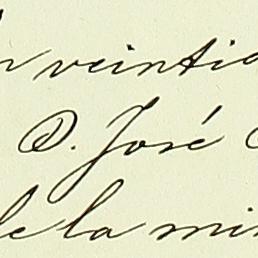 n veintid
D. José
de la mi